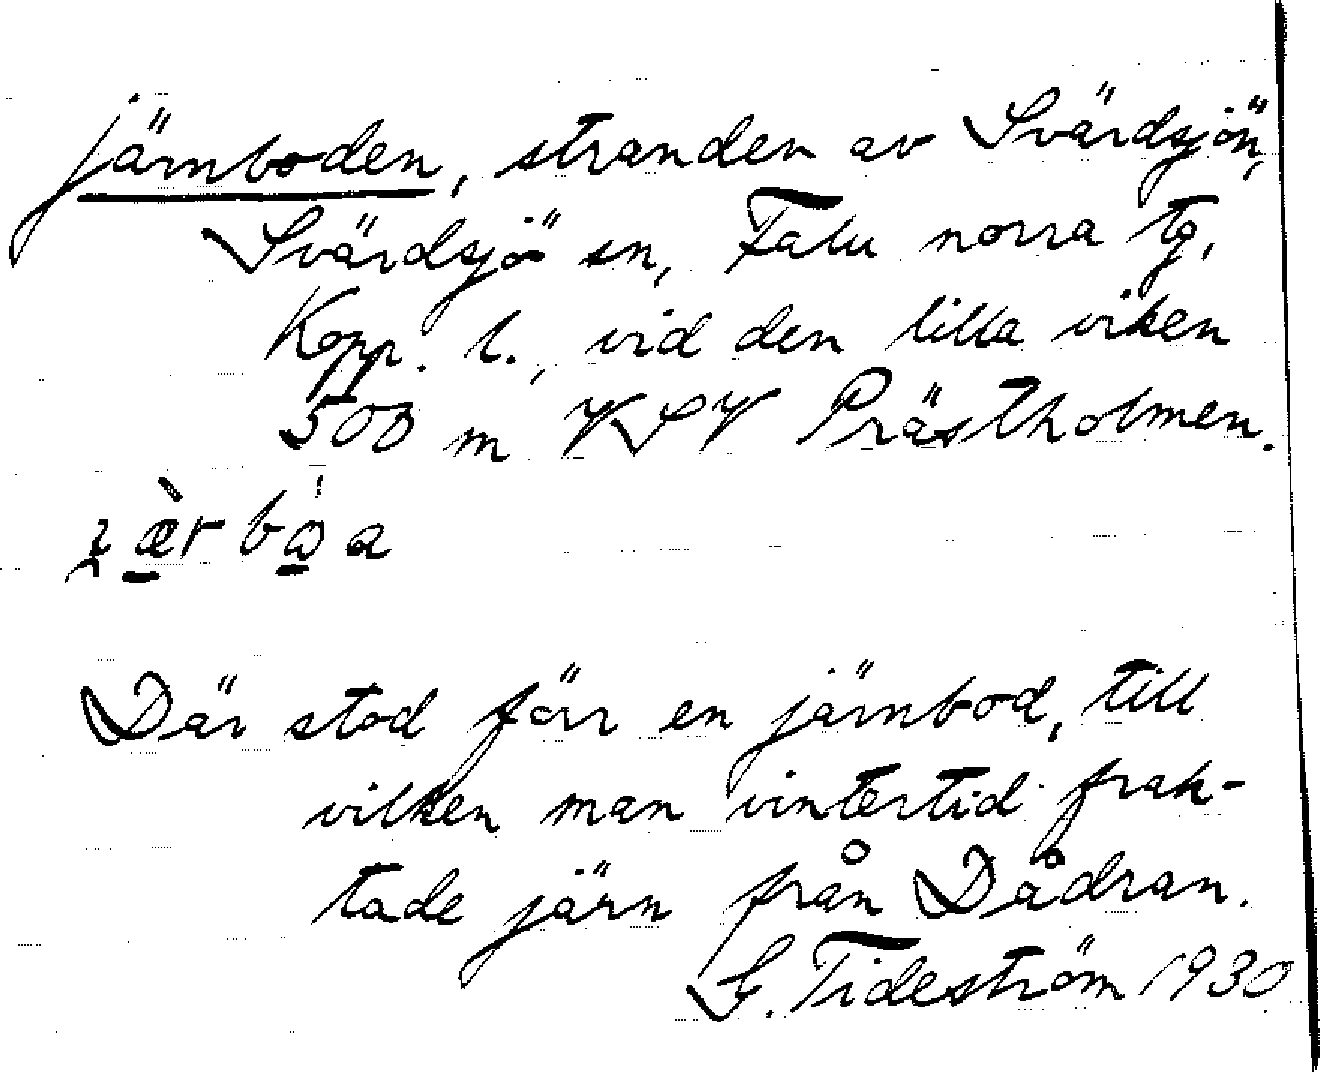 Järnboden, stranden av Svärdsjön,
Svärdsjö sn, Falu norra tg,
Kopp. l., vid den lilla viken
500 m VSV Prästholmen.
Där stod förr en järnbod, till
vilken man vintertid frak-
tade järn från Dådran.
G. Tideström 1930